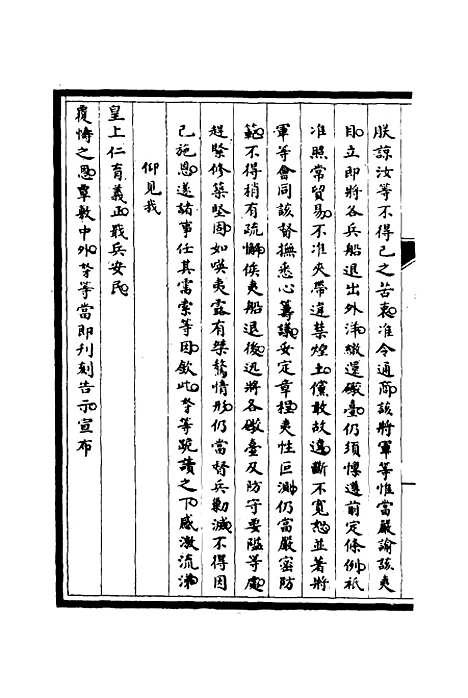 朕諒汝等不得已之苦衷准令通商該將軍等惟當嚴諭該夷
目立即將各兵船退出外洋繳還礮臺仍須懍遵前定條例祇
准照常貿易不准夾帶違禁煙土儻敢故違斷不寬恕並著將
軍等會同該督撫悉心籌議妥定章程夷性叵測仍當嚴密防
範不得稍有疏懈俟夷船退後迅將各礮臺及防守要隘等處
趕緊修築堅固如嘆夷露有桀驁情形仍當督兵勦滅不得因
已施恩遂諸事任其需索等因欽此榮等跪讀之下感激流涕
仰見我
皇上仁育義正戢兵安民
覆幬之恩覃敷中外榮等當即刊刻告示宣布